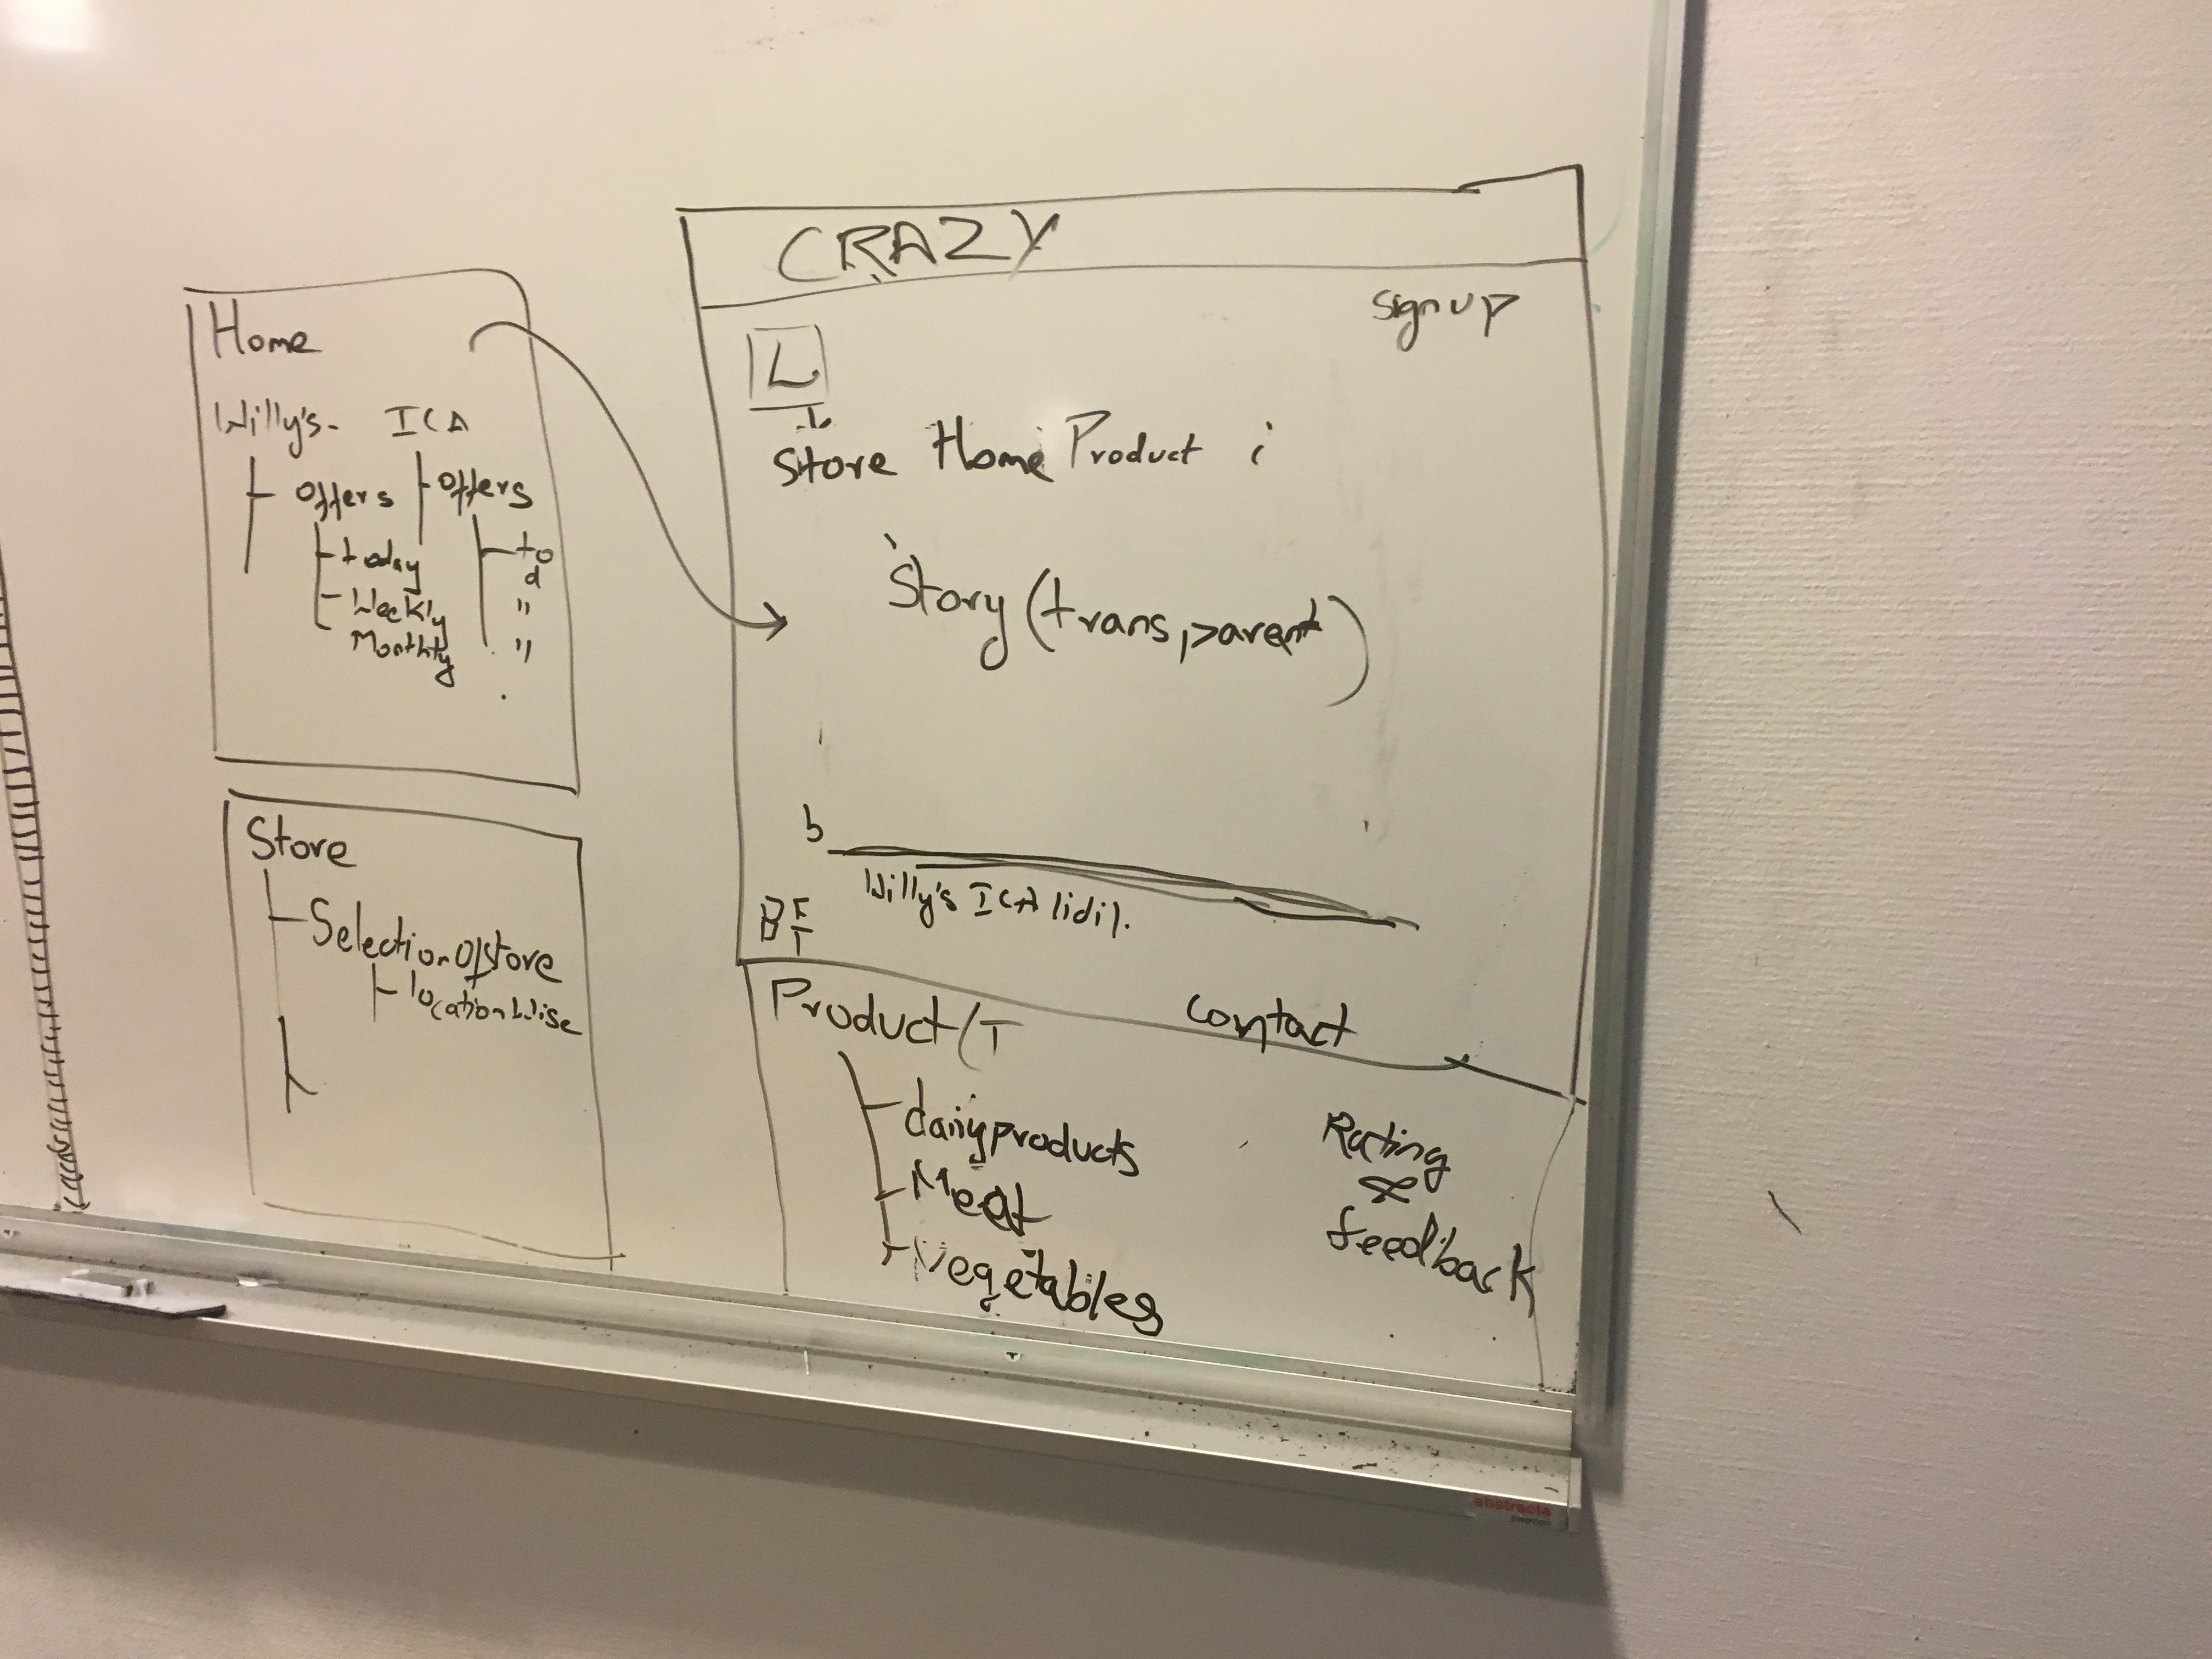 Home
Willy's - ICA
offers offers
today to
d
Weekly "
Monthly "
Store
Selection Of store
locationWise
CRAZY
Sign up
L
Store Home Product i
Story (transparent)
b
Willy's ICA lidil.
F
T
Product (T
Contact
dairy products
Meat
Vegetables
Rating
&
feedback
abstracta